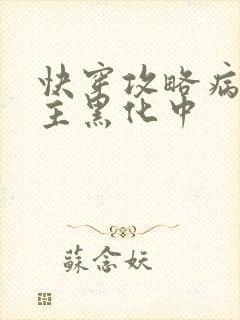 快穿攻略病
主黑化中
蘇念妖